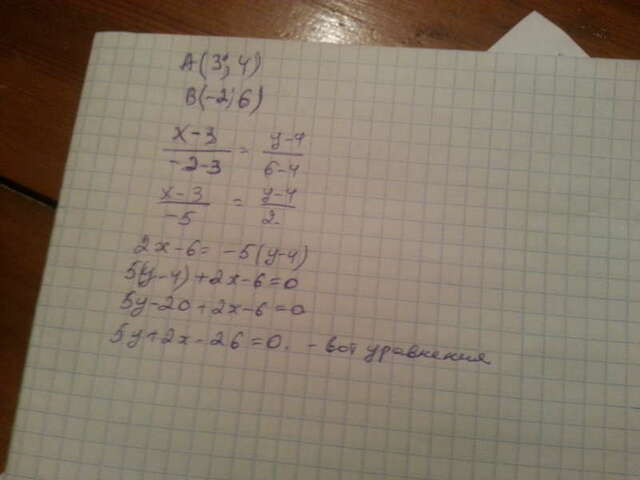 A(3; 4)
B(-2; 6)
x-3/-2-3 = y-4/6-4
x-3/-5 = y-4/2
2x-6 = -5(y-4)
5(y-4)+2x-6=0
5y-20+2x-6=0
5y+2x-26=0. - вот уравнения